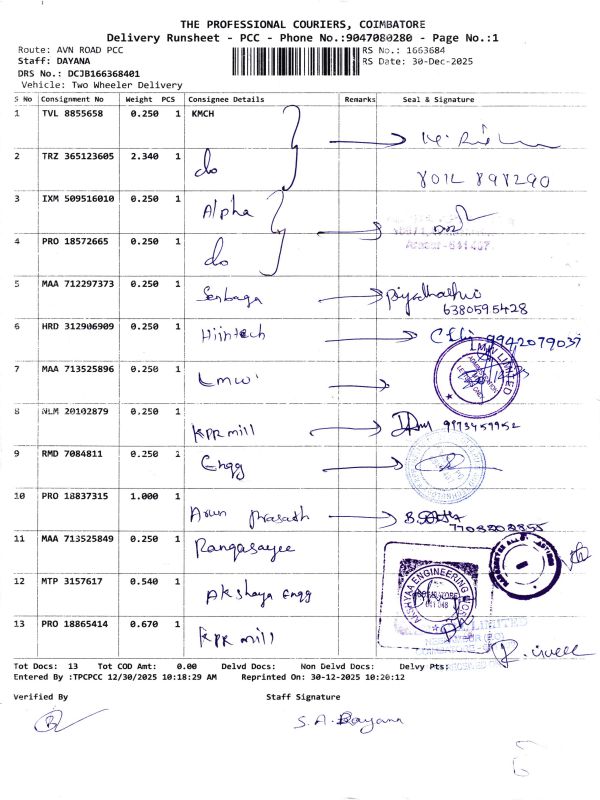 THE PROFESSIONAL COURIERS, COIMBATORE
Delivery Runsheet - PCC - Phone No.:9047080280 - Page No.:1
Route: AVN ROAD PCC RS No.: 1663684
Staff: DAYANA RS Date: 30-Dec-2025
DRS No.: DCJB166368401
Vehicle: Two Wheeler Delivery
S No Consignment No Weight PCS Consignee Details Remarks Seal & Signature
1 TVL 8855658 0.250 1 KMCH
2 TRZ 365123605 2.340 1 do
8012 898290
3 IXM 509516010 0.250 1 Alpha
4 PRO 18572665 0.250 1 do
5 MAA 712297373 0.250 1 Senbaga
6380595428
6 HRD 312906909 0.250 1 Hiintech 9942079037
7 MAA 713525896 0.250 1 Lmw
LMW LIMITED
8 NLM 20102879 0.250 1 KPR mill
9 RMD 7084811 0.250 1 Engg
10 PRO 18837315 1.000 1 Arun Prasath
11 MAA 713525849 0.250 1 Rangasayee
12 MTP 3157617 0.540 1 Akshaya Engg
13 PRO 18865414 0.670 1 KPR mill
Tot Docs: 13 Tot COD Amt: 0.00 Delvd Docs: Non Delvd Docs: Delvy Pts:
Entered By :TPCPCC 12/30/2025 10:18:29 AM Reprinted On: 30-12-2025 10:20:12
Verified By Staff Signature
S. A. Dayana